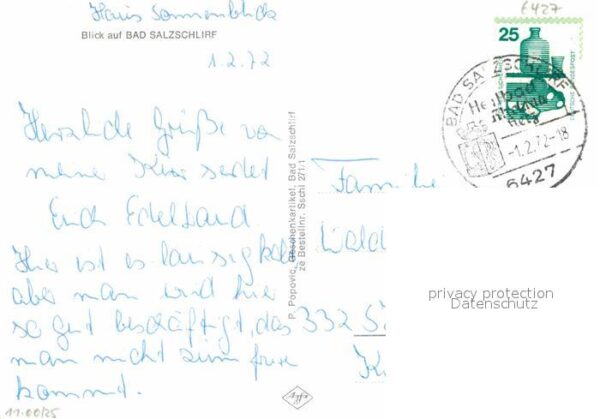 Haus Sonnenblick
Blick auf BAD SALZSCHLIRF
1.2.72
Herzliche Grüße von
meine Kur sendet
Euch Edeltraud
Hier ist es
aber man wird hier
so gut beschäftigt, das
man nicht zum
kommt.
11-00/25
P. Popovic, Geschenkartikel, Bad Salzschlirf
zé Bestellnr. Sschl 27/1
Agfa
6427
25
DEUTSCHE BUNDESPOST
BAD SALZSCHLIRF
Heilbad
-1.2.72-18
6427
Familie
Wald
332 S
K
privacy protection
Datenschutz